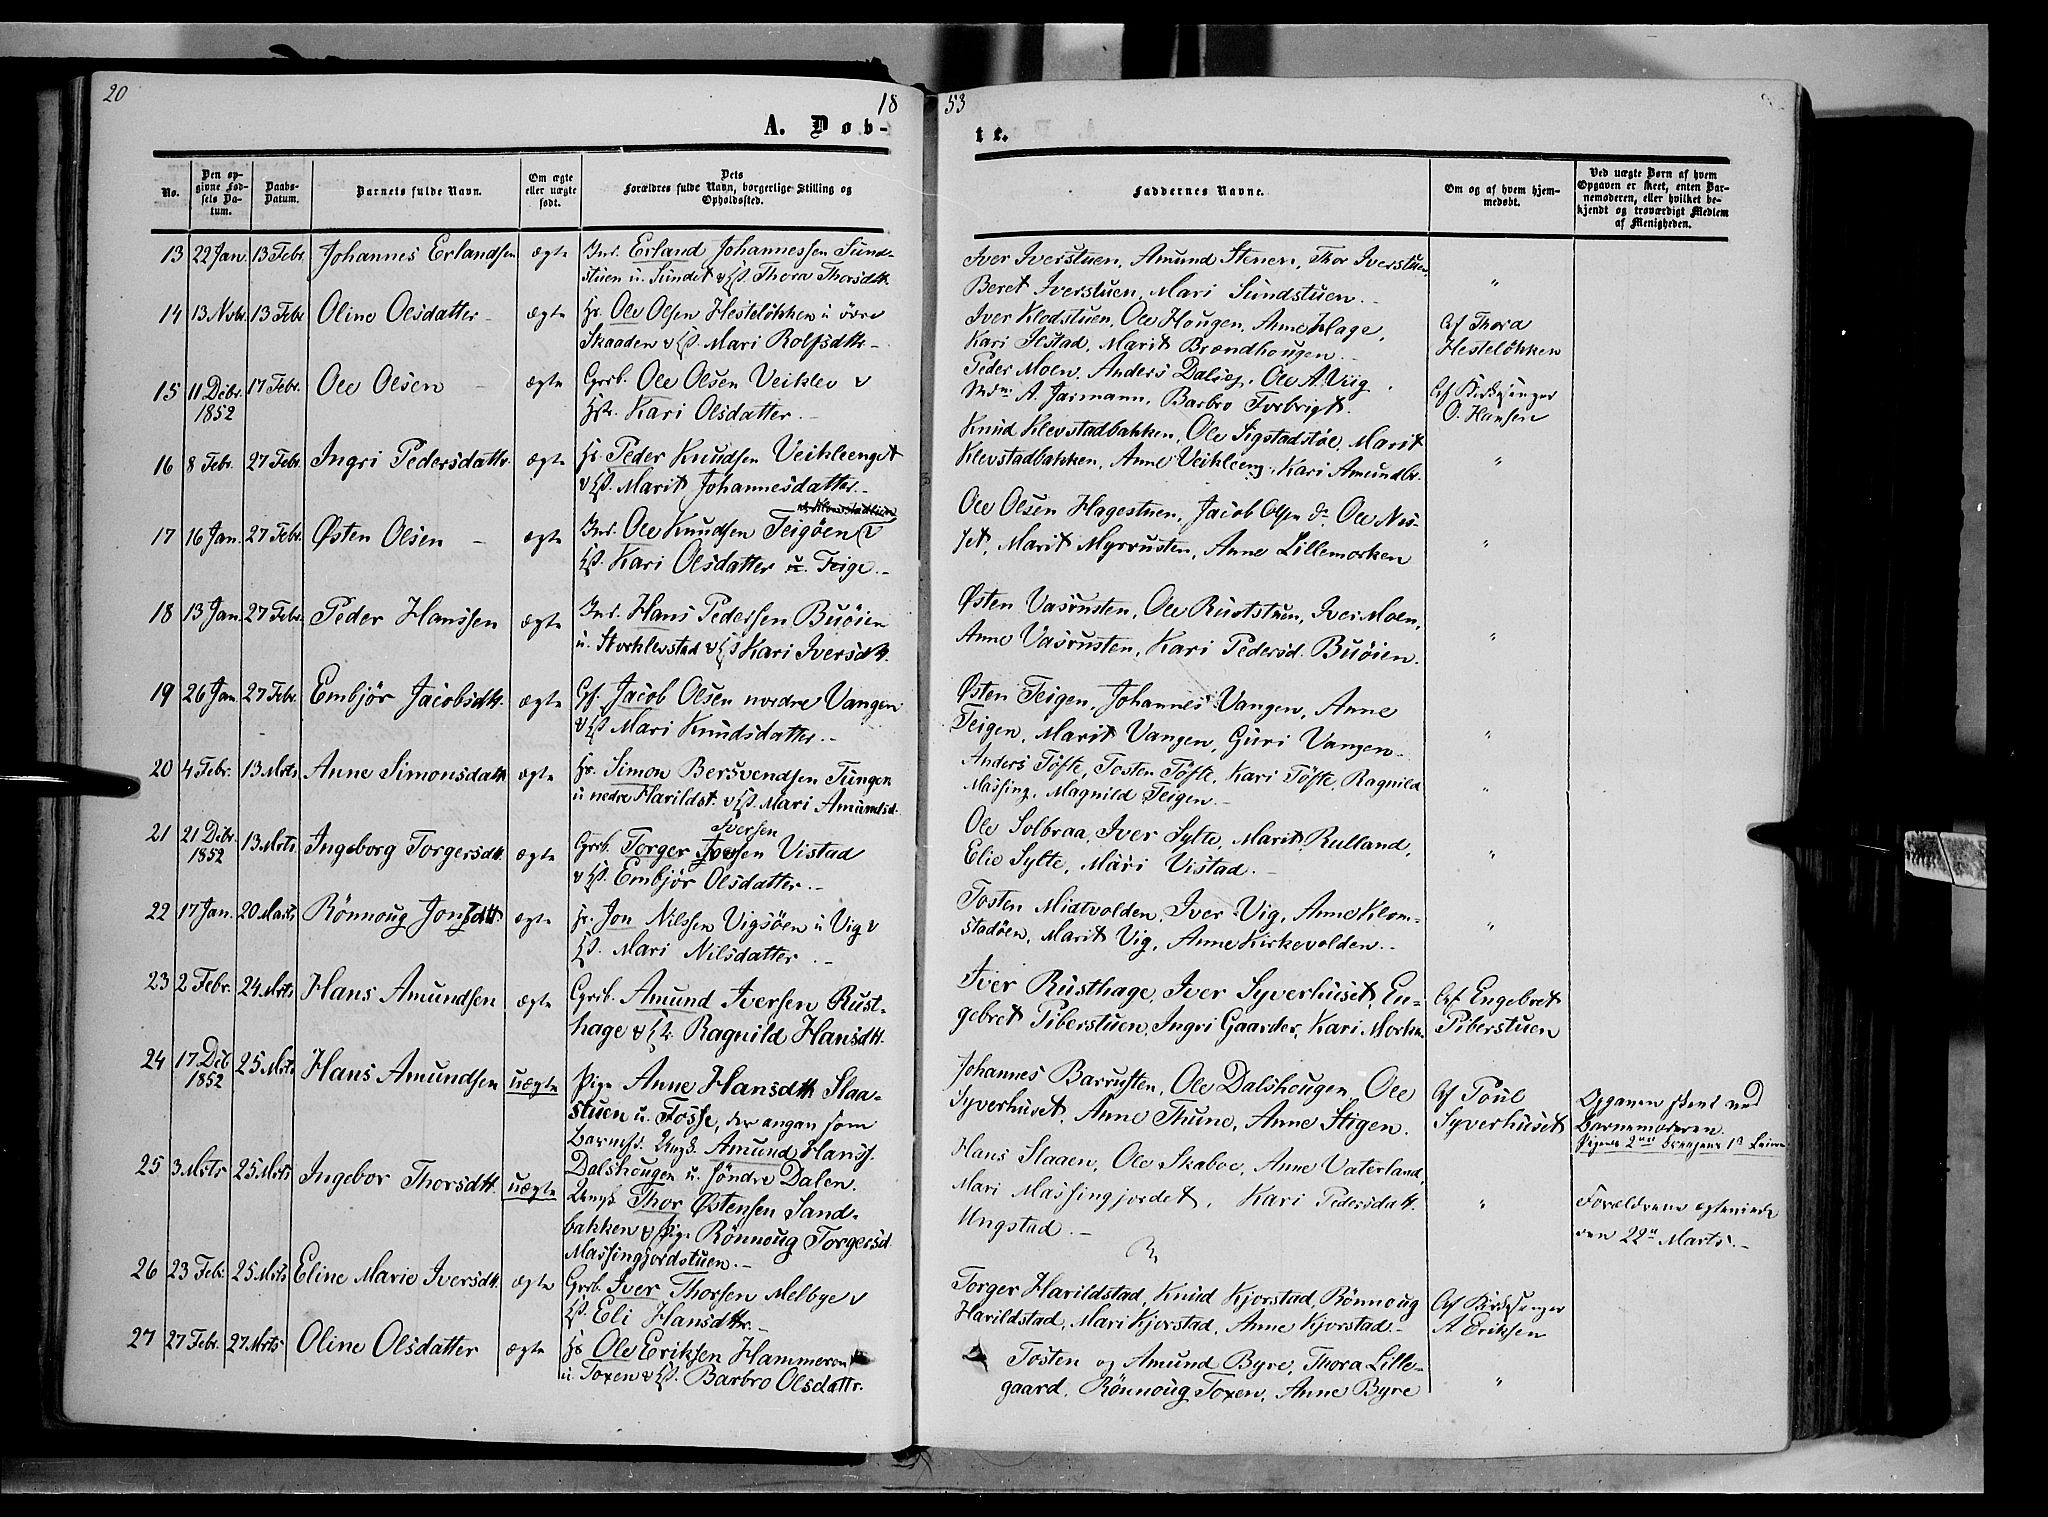 20
18
53
A. Døb-
te.
No.
Den op-
givne Fød-
sels Da-
tum.
Daabs-
Datum.
Barnets fulde Navn.
Om ægte
eller uægte
født.
Dets
Forældres fulde Navn, borgerlige Stilling og
Opholdssted.
Faddernes Navne.
Om og af hvem hjem-
medøbt.
Ved uægte Børn af hvem
Opgaven er skeet, enten Bar-
nemoderen, eller hvilket be-
kjendt og troværdigt Medlem
af Menigheden.
13 22 Jan. 13 Febr. Johannes Erlandsen ægte Ins. Erland Johannessen Sund-
stuen u. Sundet & Thora Thorsdtr.
Iver Iverstuen, Amund Stenen, Thor Iverstuen,
Beret Iverstuen, Mari Sundstuen. "
14 13 Nvbr. 13 Febr Oline Olsdatter ægte Hs. Ole Olsen Hesteløkken u övre
Skaaden & Mari Rolfsdtr
Iver Klodstuen, Ole Haugen, Anne Hage, Af Thora
Kari Ilstad, Marit Brændhougen. Hesteløkken
15 11 Debr. 17 Febr. Ole Olsen ægte Grb. Ole Olsen Veiklev &
1852 Hst. Kari Olsdatter.
Peder Moen, Anders Dalseg, Ole A. Viig, Af Kirkesanger
Mdm A. Jarmann, Barbro Forbrigt. O. Hansen
16 8 Febr. 27 Febr. Ingri Pedersdattr. ægte Hs. Peder Knudsen Veikleenget
& Marit Johannesdatter.
Knud Klevstadbakken, Ole Sigstadstøe, Marit
Klevstadbakken, Anne Veikleeng, Kari Amundbr. "
17 16 Jan. 27 Febr. Østen Olsen ægte Ins. Ole Knudsen Teigøen &
Kari Olsdatter u. Teige.
Ole Olsen Hagestuen, Jacob Olsen do. Ole Nes-
set, Marit Myrrusten, Anne Lillemorken "
18 13 Jan. 27 Febr. Peder Hanssen ægte Ins. Hans Pedersen Buøien
u. Storklevstad & Kari Iversdtr.
Østen Vasrusten, Ole Ruststuen, Iver Moen,
Anne Vasrusten, Kari Pedersd. Buøien. "
19 26 Jan 27 Febr. Embjör Jacobsdtr. ægte Gf. Jacob Olsen nordre Vangen
& Mari Knudsdatter.
Østen Teigen, Johannes Vangen, Anne
Teigen, Marit Vangen, Guri Vangen. "
20 4 Febr. 13 Mrts Anne Simonsdatt ægte Hs. Simon Bersvendsen Tungen
u nedre Harildst. & Mari Amundsd.
Anders Töfte, Tosten Töfte, Kari Töfte, Ragnild
Massing, Magnild Teigen. "
21 21 Debr. 13 Mrts. Ingeborg Torgersdtr. ægte Iversen
1852 Grb. Torger Iversen Vistad
& Embjör Olsdatter.
Ole Solbraa, Iver Sylte, Marit Rulland,
Elie Sylte, Mari Vistad. "
22 17 Jan. 20 Marts Rönnoug Jonsdtt ægte Hs. Jon Nilssen Vigsöen u Vig &
Mari Nilsdatter.
Tosten Midtvolden, Iver Vig, Anne Klom-
stadöen, Marit Vig, Anne Kirkevolden. "
23 2 Febr. 24 Mrts Hans Amundsen ægte Grb. Amund Iversen Rust-
hage & Ragnild Hansdtt.
Iver Rusthage, Iver Syverhuset, En- Af Engebret
gebret Piberstuen, Ingri Gaarder, Kari Morken Piberstuen
24 17 Deb. 25 Mrts Hans Amundsen uægte Pige Anne Hansdtr. Slaa-
1852 stuen u. Fosse, der angav som
Barnefd. Ungk. Amund Hanss.
Dalshougen u. søndre Dalen.
Johannes Barrusten, Ole Dalshougen, Ole Af Poul
Syverhuset, Anne Thune, Anne Stigen. Syverhuset
Opgaven skeet ved
Barnemoderen.
25 3 Mrts 25 Mrts Ingebor Thorsdtt. uægte Ungk. Thor Østensen Sand-
bakken & Pige Rönnoug Torgersd
Massingjordstuen.
Hans Slaaen, Ole Skaboe, Anne Vaterland,
Mari Massingjordet, Kari Pedersdatt. "
Ungstad.
Forældrene ægteviede
den 22n Marts.
26 23 Febr. 25 Mrts Eline Marie Iversdtr. ægte Grb. Iver Thorsen Melbye &
Eli Hansdtr.
Torger Harildstad, Knud Kjorstad, Rønnoug Af Kirkesanger
Harildstad, Mari Kjorstad, Anne Kjorstad. A. Eriksen
27 27 Febr. 27 Mrts Oline Olsdatter ægte Hs Ole Eriksen Hammeren
u. Toxen & Barbro Olsdattr.
Tosten og Amund Byre, Thora Lille-
gaard, Rönnoug Toxen, Anne Byre "